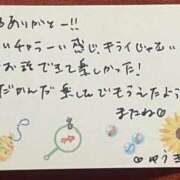 ありがとー!!
いチャラーい感じ、キライじゃな
お話できて楽しかった!
だかんだ楽しんでもらえたよう
またね♡
♡ゆうき